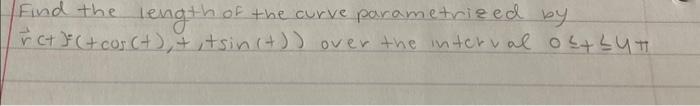 Find the length of the curve parametrized by
r⃗(t)=(tcos(t),t,tsin(t)) over the interval 0≤t≤4π